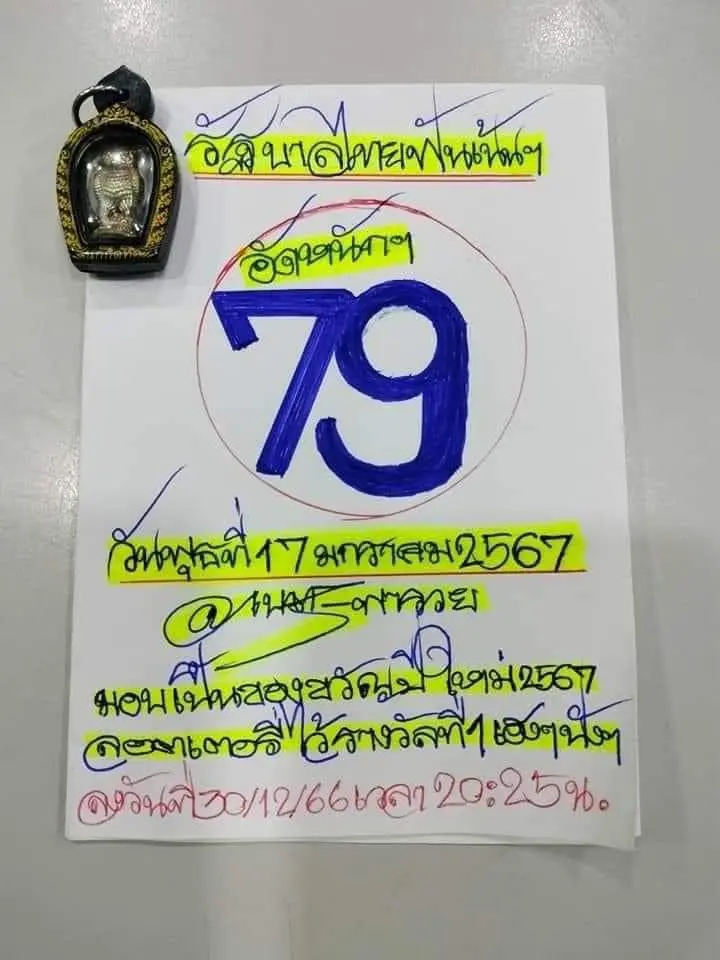 รัฐบาลไทยฟันเน้นๆ
อัดหนักๆ
79
วันพุธที่ 17 มกราคม 2567
พารวย
มอบเป็นของขวัญปีใหม่ 2567
ลอตเตอรี่ ไร้รางวัลที่ 1 เฮงๆปังๆ
ลงวันที่ 30/12/66 เวลา 20:25 น.